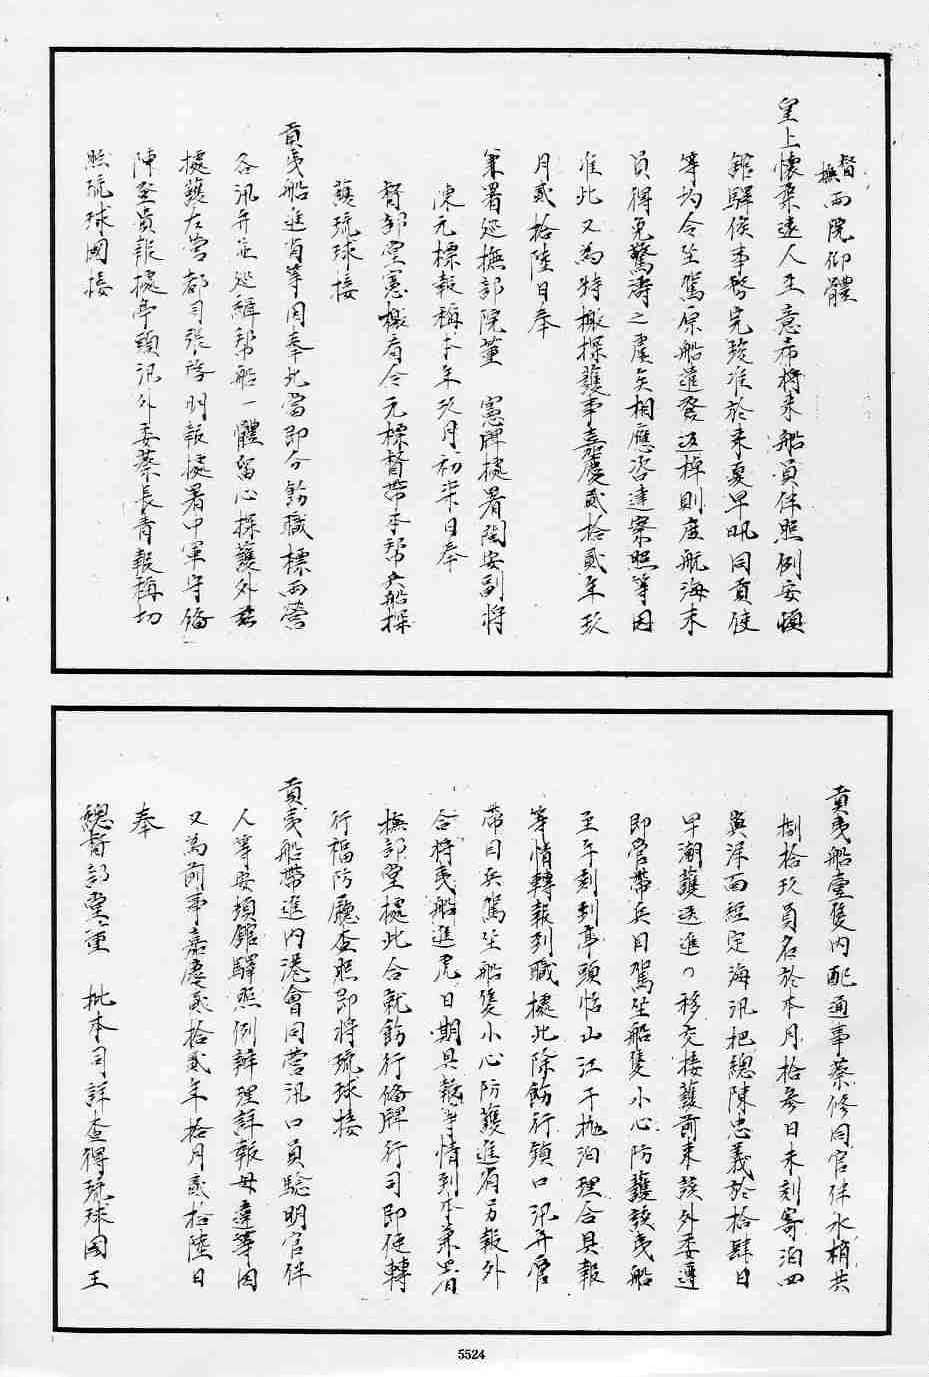 督撫両院仰體
皇上懷柔遠人至意希将来船員伴照例安頓
館驛俟事務完竣准於来夏早帆同貢使
等均令坐駕原船遣發返棹則庶航海末
員得免驚濤之虞矣相應咨達察照等因
准此又為特檄探護事嘉慶貳拾貳年玖
月貳拾陸日奉
兼署巡撫部院董 憲牌據署閩安副将
陳元標報稱本年玖月初柒日奉
督部堂憲檄為令元標督帶本幇兵船探
護琉球接
貢夷船進省等因奉此當即分飭職標両營
各汛弁並巡緝幇船一體留心探護外茲
據護左營都司張 明報據署中軍守備
陳 員報據亭頭汛外委蔡長青報稱切
照琉球國接
貢夷船壹隻内配通事蔡修同官伴水梢共
捌拾玖員名於本月拾參日未刻寄泊四
與洋面經定海汛把總陳忠義於拾肆日
早潮護送進口移交接護前来該外委遵
即管帶兵目駕坐船隻小心防護該夷船
至午刻到亭頭怡山江干抛泊理合具報
等情轉報到職據此除飭行鎮口汛弁督
帶目兵駕坐船隻小心防護進省另報外
合将夷船進虎日期具報等情到本兼署
撫部堂據此合就飭行備牌行司即便轉
行福防廳查照即将琉球接
貢夷船帶進内港會同營汛口員驗明官伴
人等安頓館驛照例辦理詳報毋違等因
又為前事嘉慶貳拾貳年拾月貳拾陸日
奉
總督部堂董 批本司詳查得琉球國王
5524